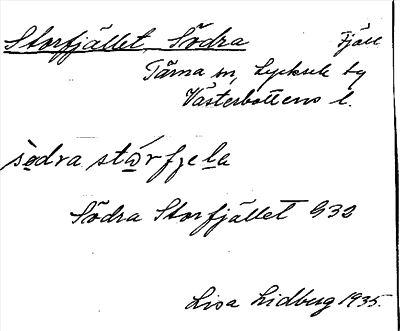 Storfjället, Södra Fjäll
Tärna sn, Lycksele tg
Västerbottens l.
sö̀dra stórfjełe
Södra Storfjället G32
Lisa Lidberg 1935.